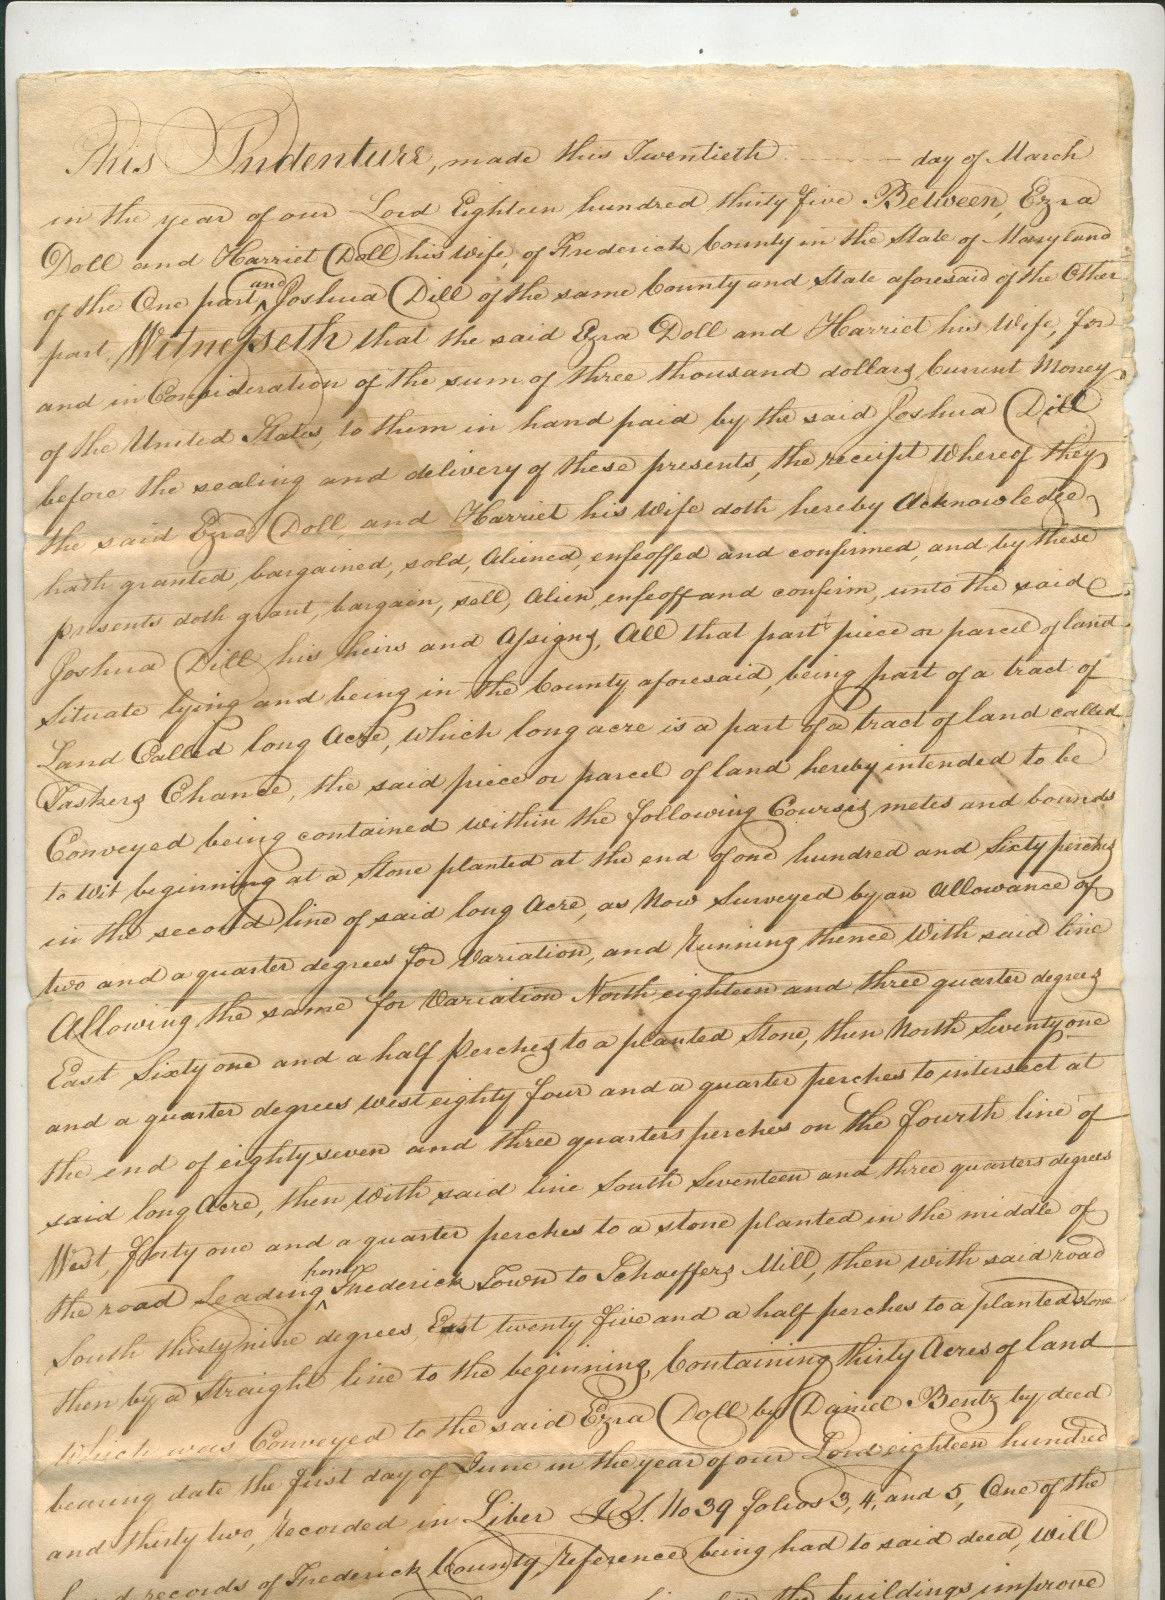 This Indenture, made this Twentieth day of March
in the year of our Lord Eighteen hundred thirty five Between, Ezra
Doll and Harriet Doll his wife, of Frederick County in the State of Maryland
of the One part and Joshua Dill of the same County and State aforesaid of the Other
part, Witnesseth that the said Ezra Doll and Harriet his Wife, for
and in Consideration of the sum of three thousand dollars Current Money
of the United States, to them in hand paid by the said Joshua Dill
before the sealing and delivery of these presents, the receipt Whereof they
the said Ezra Doll and Harriet his Wife doth hereby Acknowledge,
hath granted, bargained, sold, Aliened, enfeoffed and confirmed, and by these
presents doth grant, bargain, sell, Alien, enfeoff and confirm, unto the said
Joshua Dill his heirs and Assigns, All that part piece or parcel of land
Situate lying and being in the County aforesaid, being part of a tract of
Land Called long Acre, which long acre is a part of a tract of land called
Taskers Chance, the said piece or parcel of land hereby intended to be
Conveyed being contained within the following Courses metes and bounds
to wit beginning at a Stone planted at the end of one hundred and Sixty perches
in the second line of said long Acre, as Now Surveyed by an Allowance of
two and a quarter degrees for Variation, and Running thence With said line
Allowing the same for Variation North eighteen and three quarter degrees
East Sixty one and a half Perches to a planted Stone, then North Seventy one
and a quarter degrees West eighty four and a quarter perches to intersect at
the end of eighty seven and three quarters perches on the fourth line of
said long Acre, then With said line South Seventeen and three quarters degrees
West, forty one and a quarter perches to a stone planted in the middle of
the road Leading from Frederick Town to Schaeffers Mill, then with said road
South thirty nine degrees, East twenty five and a half perches to a planted stone
then by a Straight line to the beginning, Containing thirty Acres of land
Which was Conveyed to the said Ezra Doll by Daniel Bentz by deed
bearing date the first day of June in the year of our Lord eighteen hundred
and thirty two, Recorded in Liber I.S. No 39 folios 3, 4, and 5, One of the
land records of Frederick County Reference being had to said deed, Will
the buildings improve